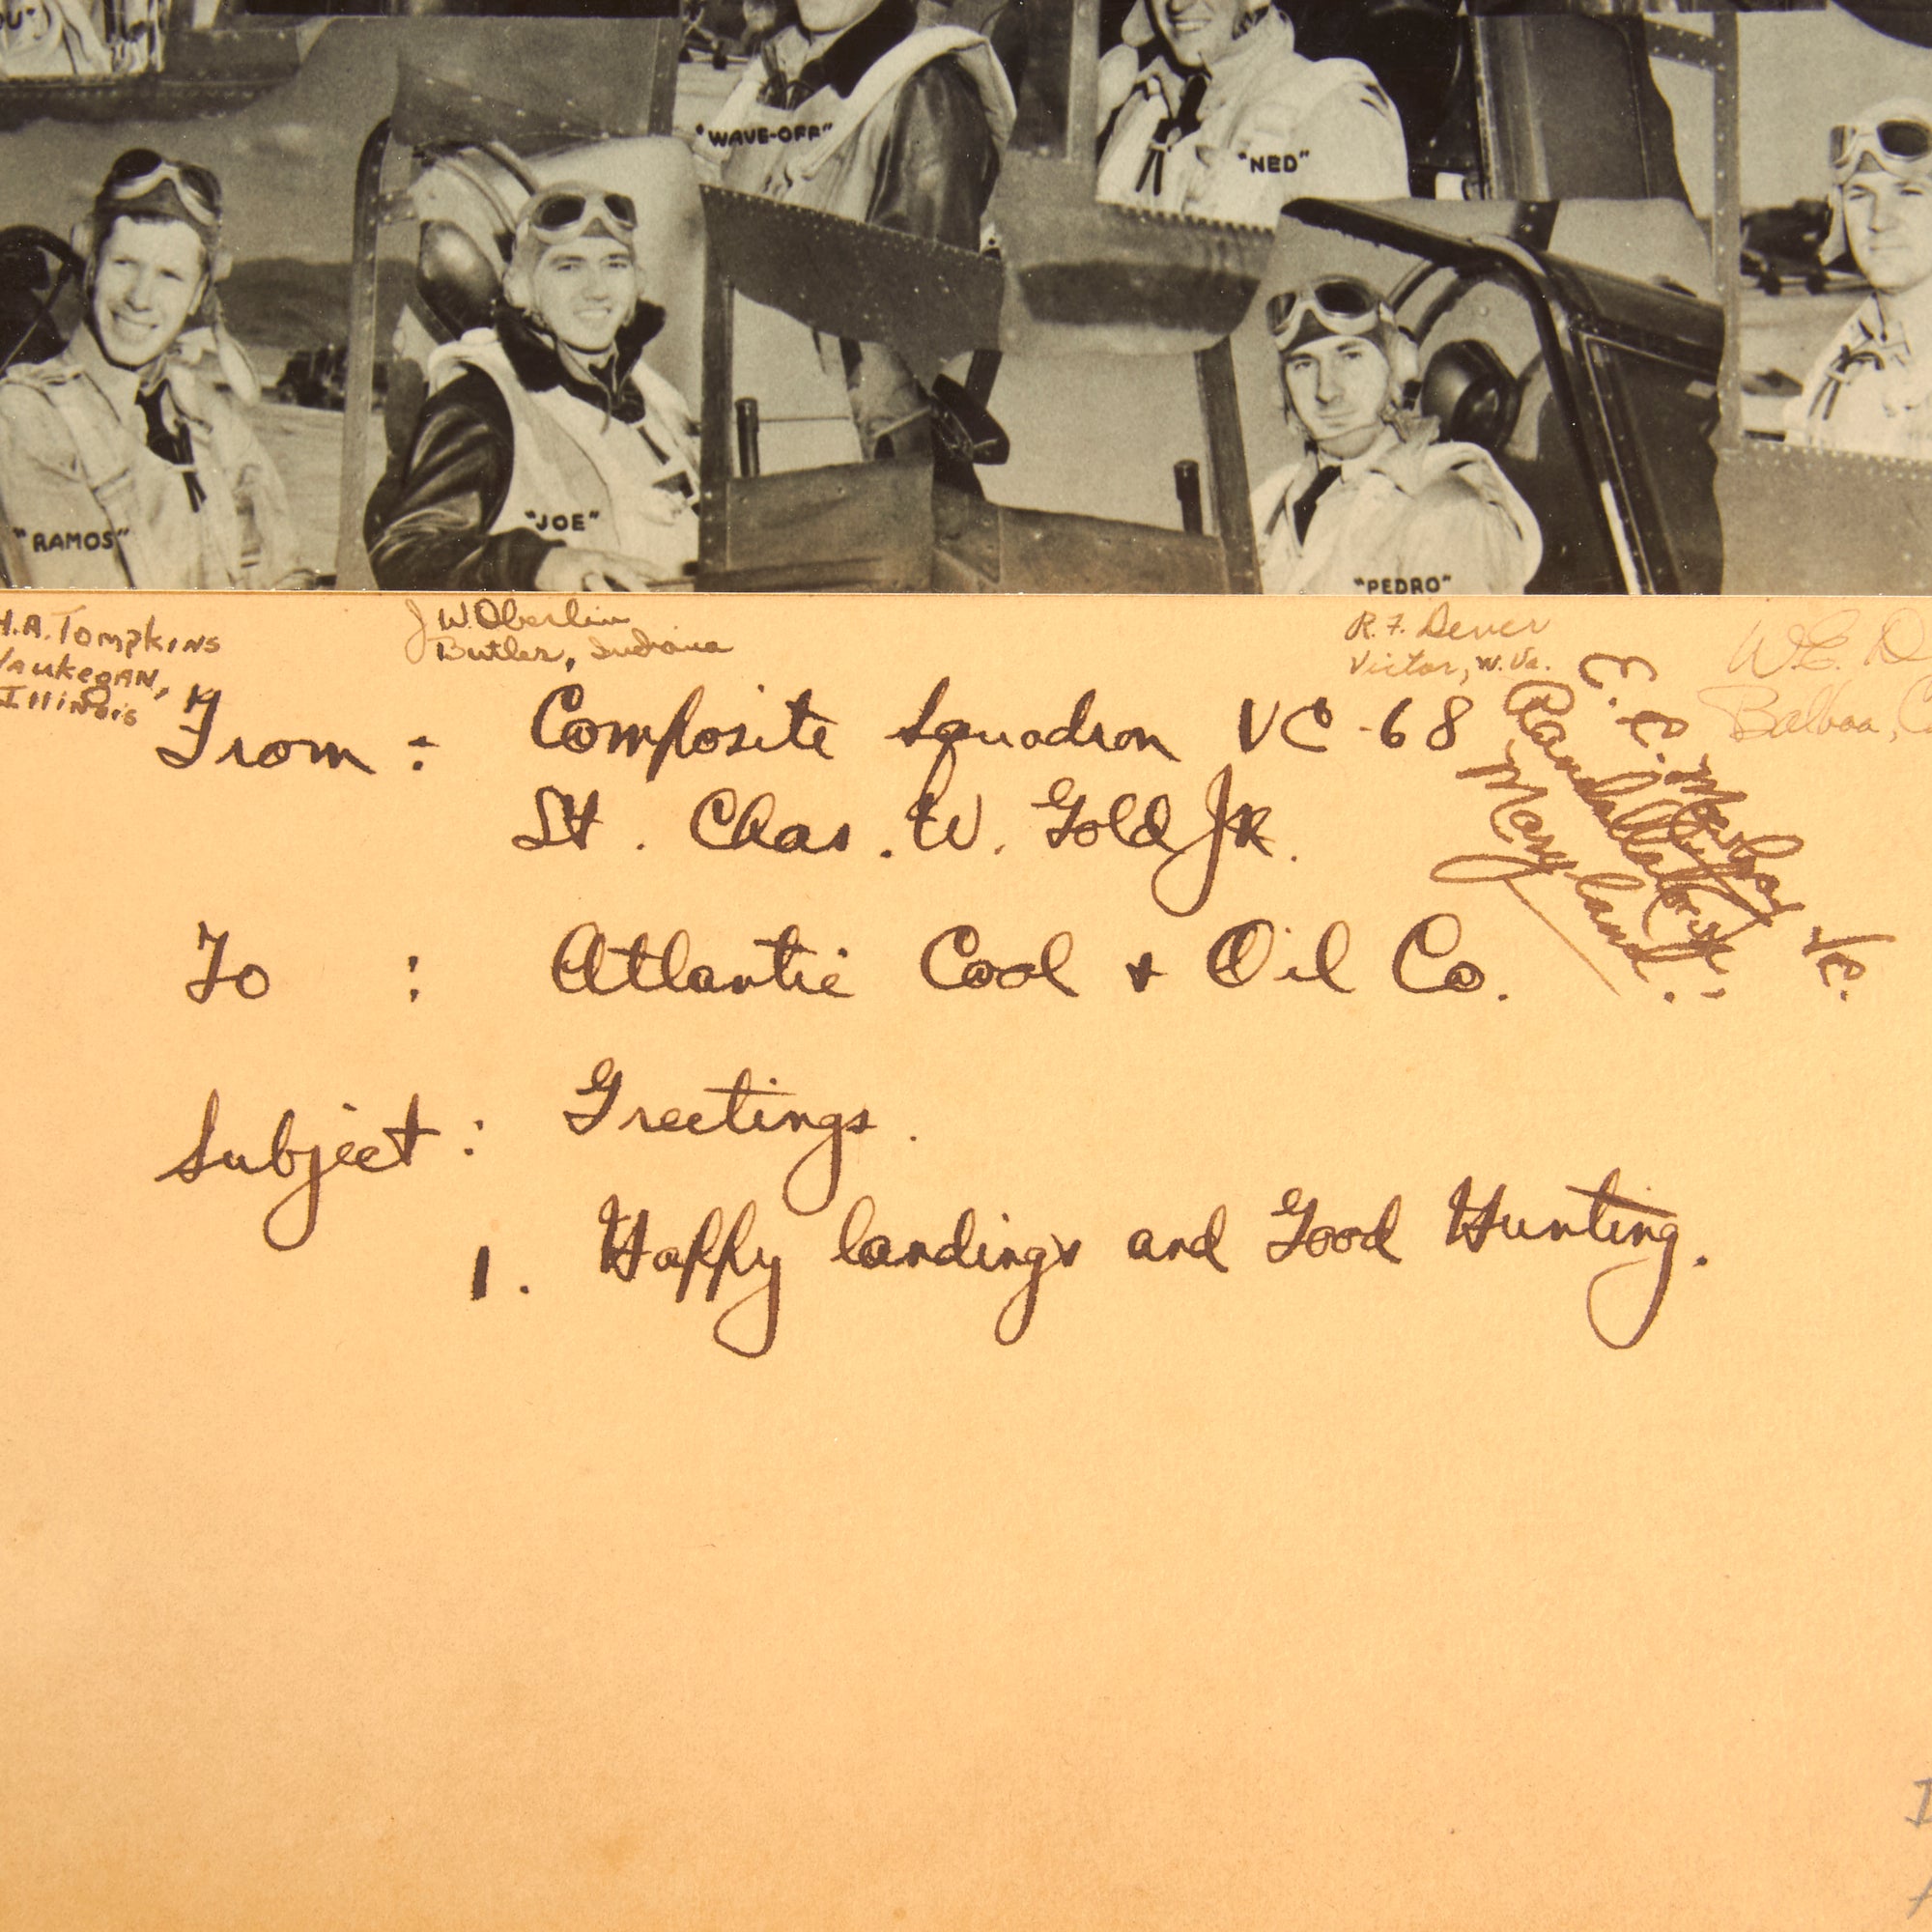 "WAVE-OFF"
"NED"
"RAMOS"
"JOE"
"PEDRO"
H.A. Tompkins
Waukegan,
Illinois
J W. Oberlin
Butler, Indiana
R. F. Dever
Victor, W. Va.
W. E. D
Balboa, C
E. E.
Randallstown
Maryland.
From : Composite Squadron VC-68
Lt. Chas. W. Gold JR.
To : Atlantic Coal + Oil Co.
Subject : Greetings.
1. Happy landings and Good Hunting.